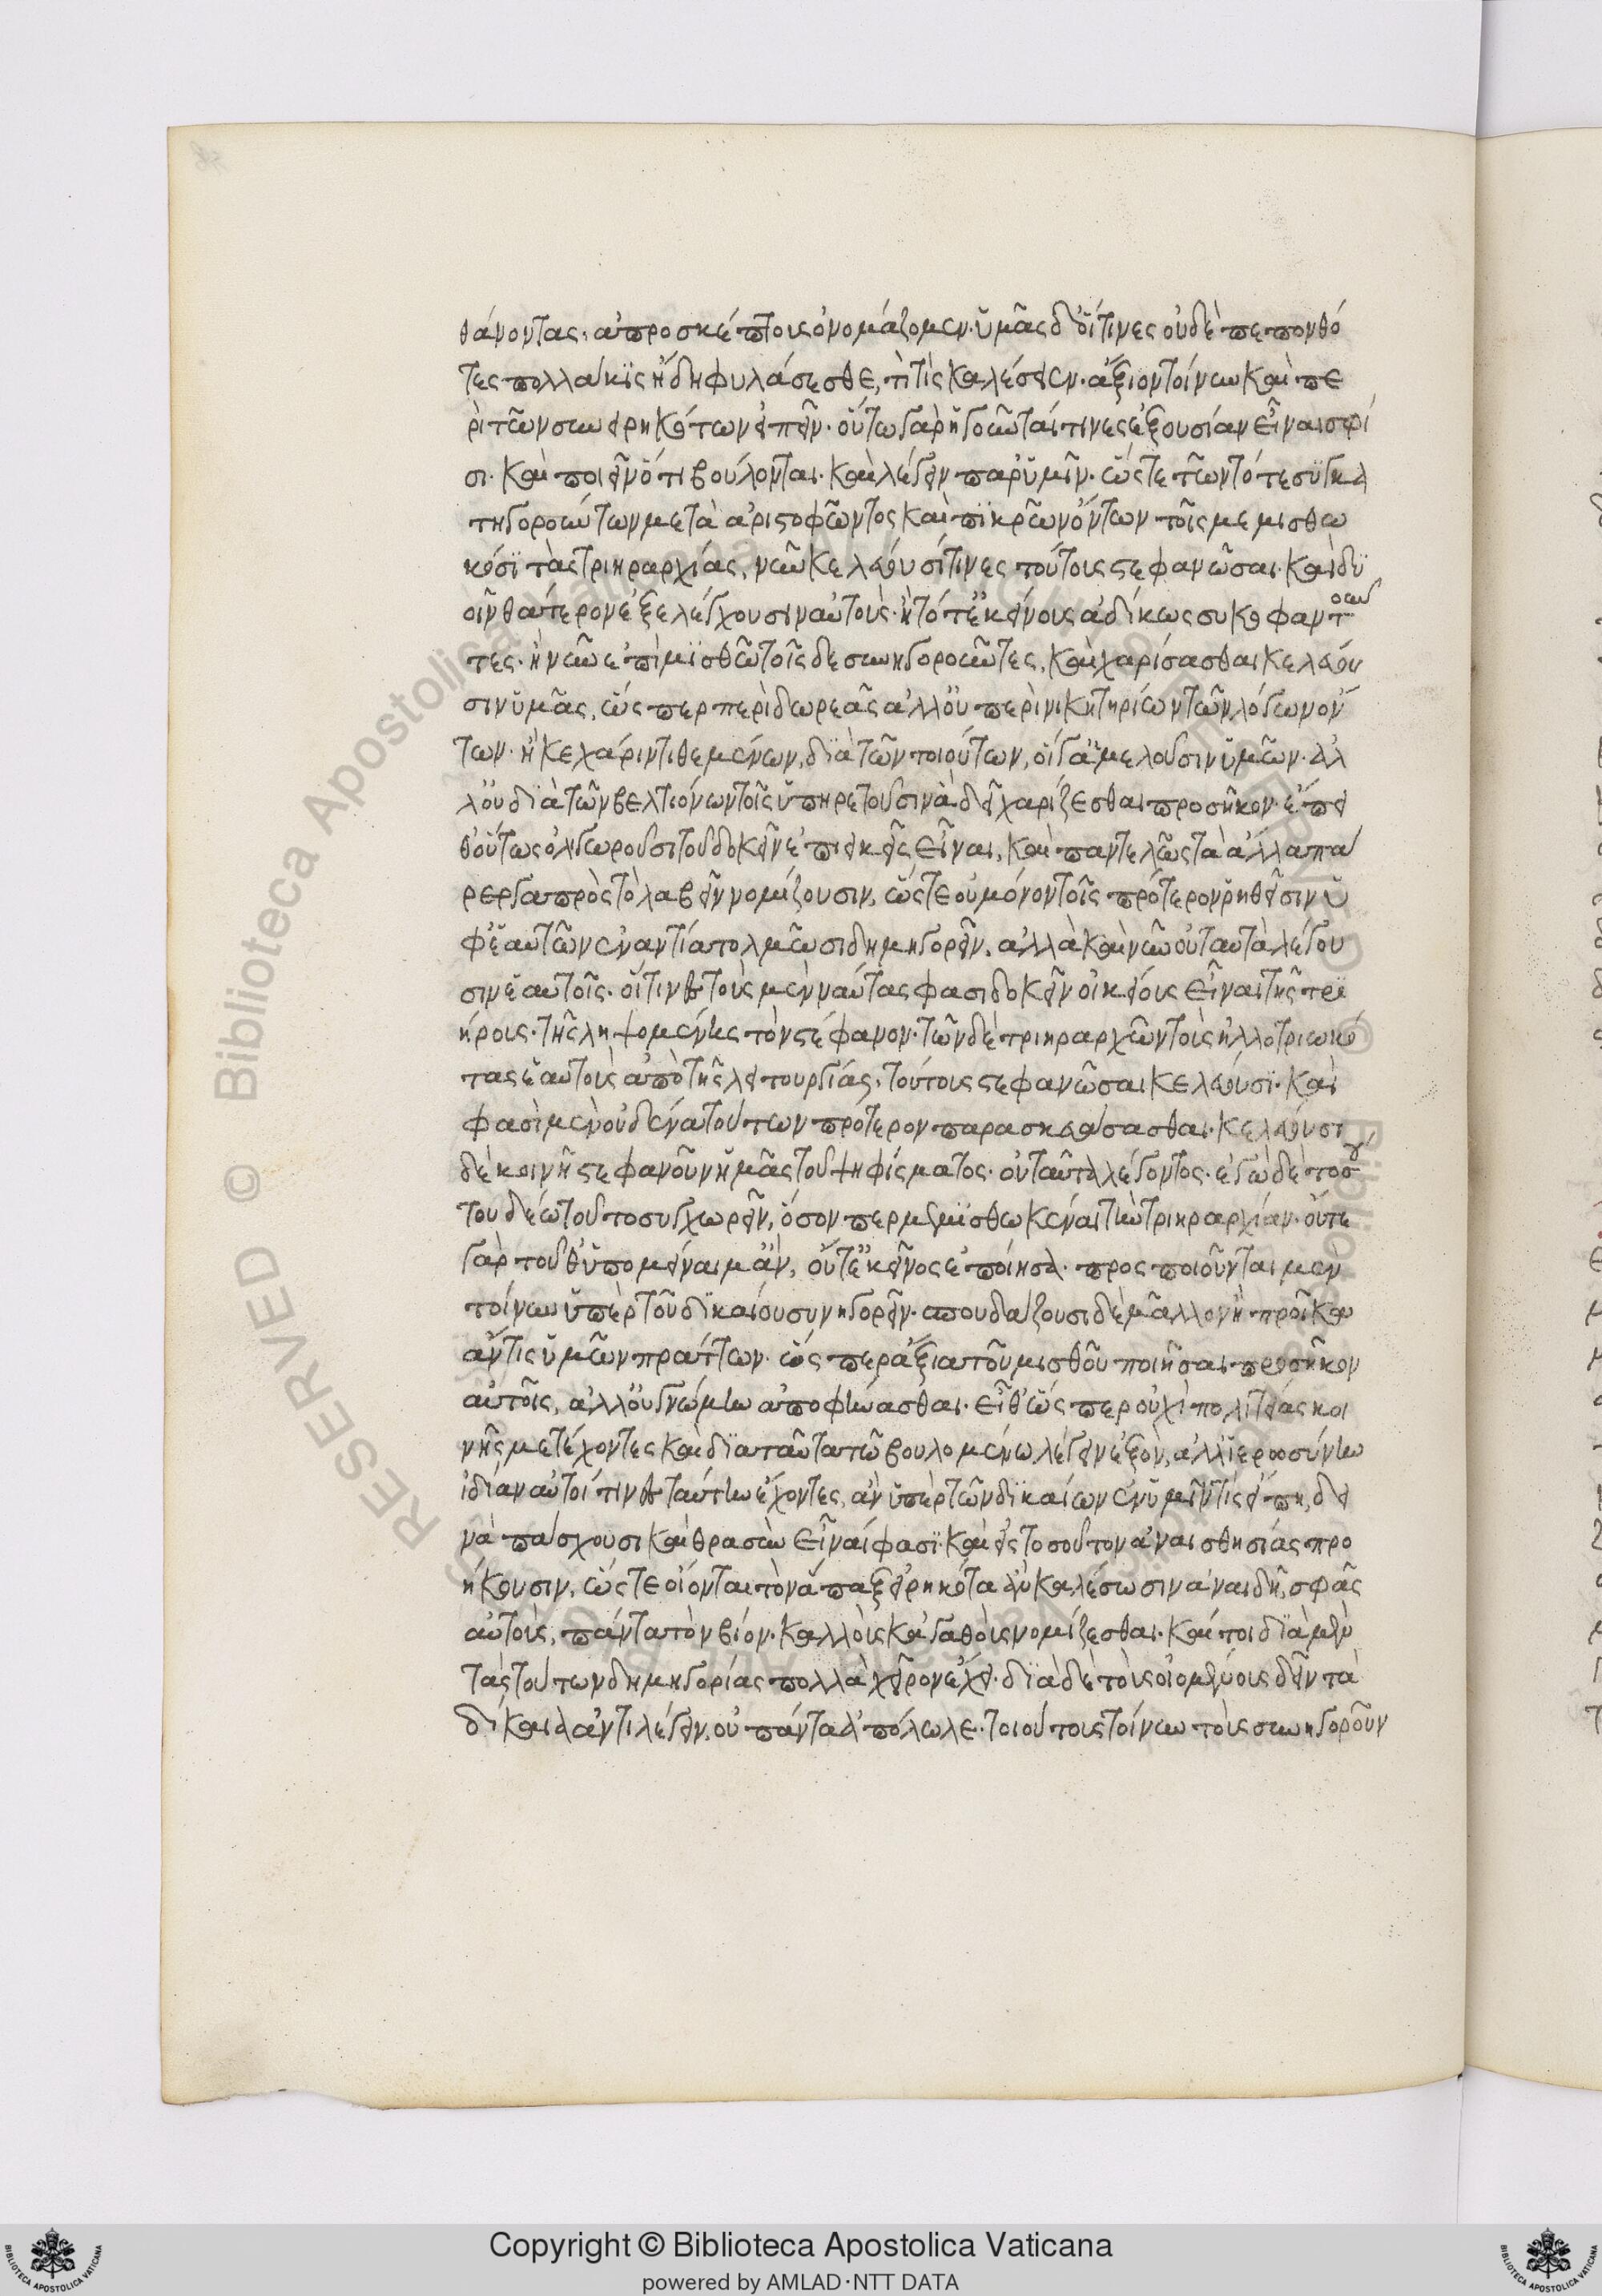 θάνοντας, ἀπροσκέπτους ὀνομάζομεν. ὑμᾶς δ' οἵτινες οὐδὲ πεπονθό
τες πολλάκις ἤδη φυλάσεσθε, τί τις καλέσειεν. ἄξιον τοίνυν καὶ πε
ρὶ τῶν συνειρηκότων εἰπεῖν. οὕτω γὰρ ἡγοῦνταί τινες ἐξουσίαν εἶναι σφί
σι. καὶ ποιεῖν ὅτι βούλονται. καὶ λέγειν παρ' ὑμῖν. ὥστε τῶν τότε συγκα
τηγορούντων μετὰ ἀριστοφῶντος καὶ πικρῶν ὄντων τοῖς μεμισθω
κόσι τὰς τριηραρχίας, νῦν κελεύουσί τινες τούτους στεφανῶσαι. καὶ δυ
οῖν θάτερον ἐξελέγχουσιν αὑτούς. ἢ τότ' ἐκείνους ἀδίκως συκοφαντοῦν
τες. ἢ νῦν ἐπὶ μισθῷ τοῖσδε συνηγοροῦντες, καὶ χαρίσασθαι κελεύου
σιν ὑμᾶς, ὥσπερ περὶ δωρεᾶς ἀλλ' οὐ περὶ νικητηρίων τῶν λόγων ὄν
των. ἢ κε χάριν τιθεμένων, διὰ τῶν τοιούτων, οἳ γ' ἀμελοῦσιν ὑμῶν. ἀλ
λ' οὐ διὰ τῶν βελτιόνων τοῖς ὑπηρετοῦσιν ἃ δεῖ χαρίζεσθαι προσῆκον. ἔπει
θ' οὕτως ὀλιγωροῦσι τοῦ δοκεῖν ἐπιεικεῖς εἶναι, καὶ παντελῶς τὰ ἄλλα πά
ρεργα πρὸς τὸ λαβεῖν νομίζουσιν, ὥστε οὐ μόνον τοῖς πρότερον ῥηθεῖσιν ὑ
φ' ἑαυτῶν ἐναντία τολμῶσι δημηγορεῖν. ἀλλὰ καὶ νῦν οὐ ταὐτὰ λέγου
σιν ἑαυτοῖς. οἵτινες τοὺς μὲν ναύτας φασὶ δοκεῖν οἰκείους εἶναι τῆς τρι
ήρους. τῆς ληψομένης τὸν στέφανον. τῶν δὲ τριηραρχῶν τοὺς ἠλλοτριωκό
τας ἑαυτοὺς ἀπὸ τῆς λειτουργίας, τούτους στεφανῶσαι κελεύουσι. καὶ
φασὶ μὲν οὐδένα τούτων πρότερον παρασκευάσασθαι. κελεύουσι
δὲ κοινῇ στεφανοῦν ἡμᾶς τοῦ ψηφίσματος. οὐ ταῦτα λέγοντος. ἐγὼ δὲ τοσού
του δέω τοῦτο συγχωρεῖν, ὅσον περ μεμισθωκέναι τὴν τριηραρχίαν. οὔτε
γὰρ τοῦθ' ὑπομείναιμ' ἂν, οὔτ' ἐκεῖνος ἐποίησα. προσποιοῦνται μὲν
τοίνυν ὑπὲρ τοῦ δικαίου συνηγορεῖν. σπουδάζουσι δὲ μᾶλλον ἢ προῖκα
ἄν τις ὑμῶν πράττων. ὥσπερ ἄξια τοῦ μισθοῦ ποιῆσαι προσῆκον
αὐτοῖς, ἀλλ' οὐ γνώμην ἀποφήνασθαι. εἶθ' ὥσπερ οὐχὶ πολιτείας κοι
νῆς μετέχοντες καὶ διὰ ταῦτα τῷ βουλομένῳ λέγειν ἐξὸν, ἀλλ' ἱεροσύνην
ἰδίαν αὐτοί τινες ταύτην ἔχοντες, ἂν ὑπὲρ τῶν δικαίων ἐν ὑμῖν τις εἴπῃ, δει
νὰ πάσχουσι καὶ θρασὺν εἶναί φασι. καὶ εἰς τοσοῦτον ἀναισθησίας προ
ήκουσιν, ὥστε οἴονται τὸν ἅπαξ εἰρηκότα ἂν καλέσωσιν ἀναιδῆ, σφᾶς
αὐτοὺς, πάντα τὸν βίον. καλλοὺς κἀγαθοὺς νομίζεσθαι. καίτοι διὰ μὲν
τὰς τούτων δημηγορίας πολλὰ χεῖρον ἔχει. διὰ δὲ τοὺς οἰομένους δεῖν τὰ
δίκαια ἀντιλέγειν, οὐ πάντα ἀπόλωλε. τοιούτους τοίνυν τοὺς συνηγοροῦν